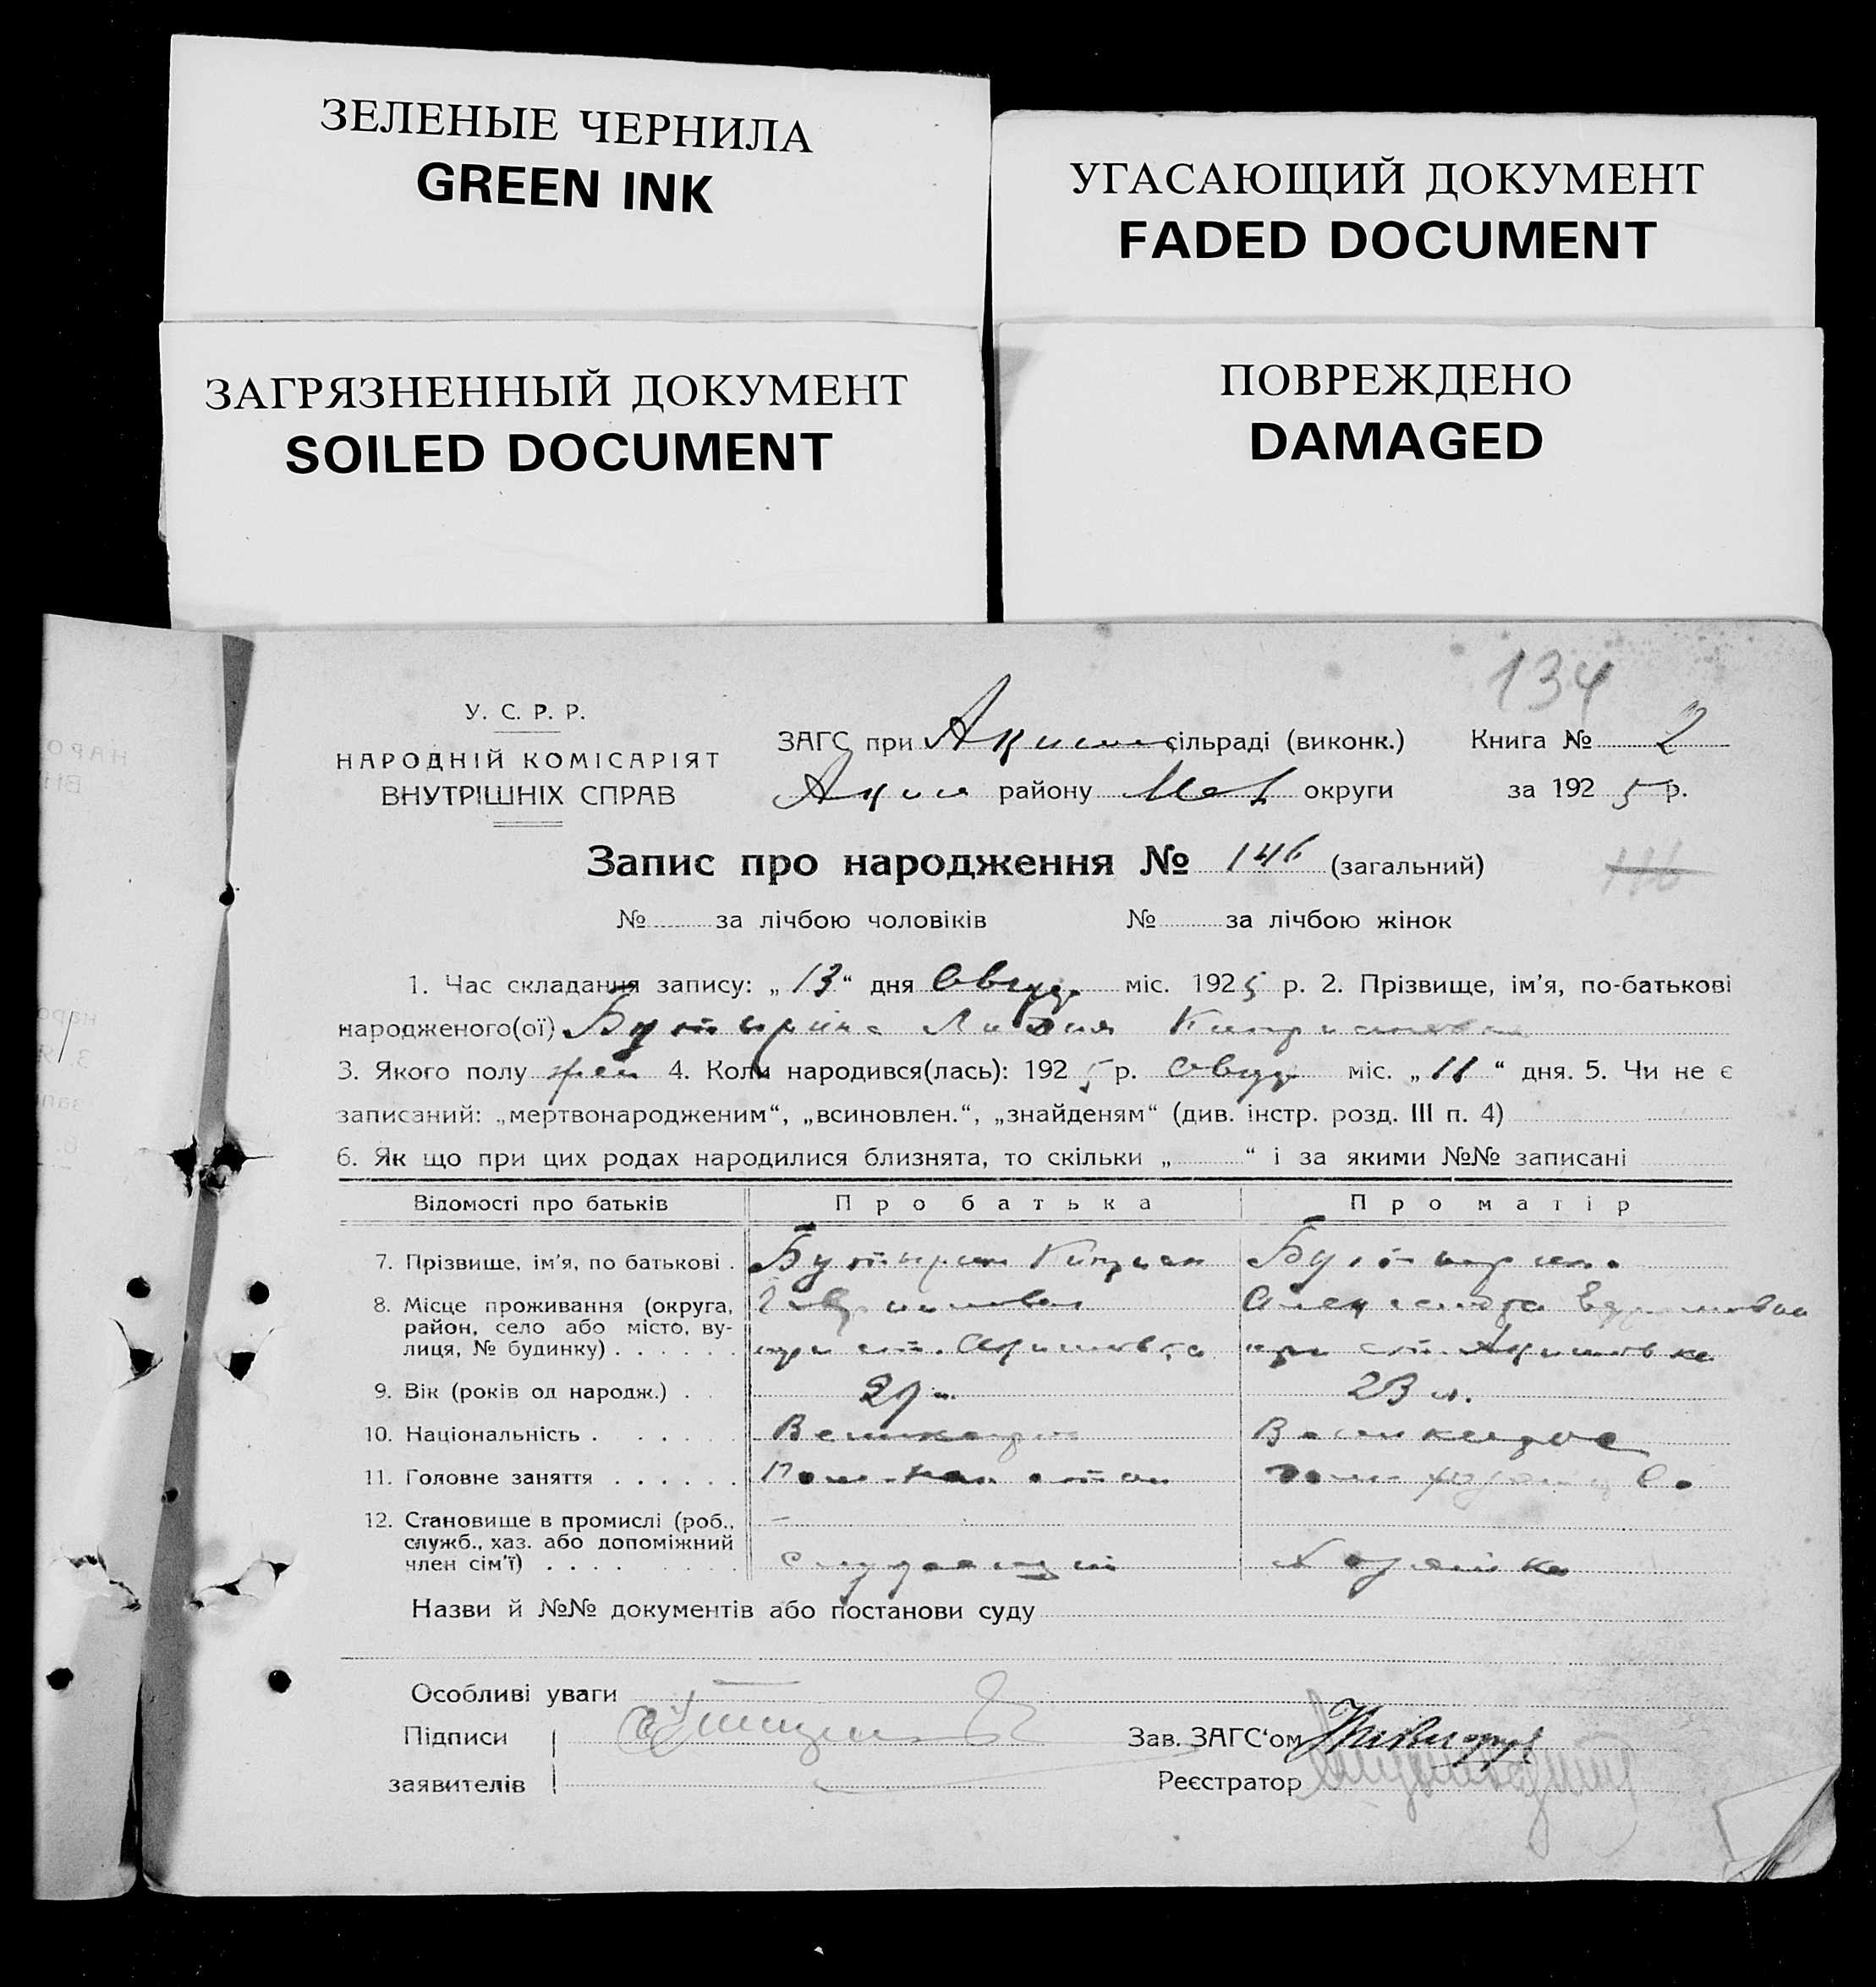 ЗЕЛЕНЫЕ ЧЕРНИЛА
GREEN INK
УГАСАЮЩИЙ ДОКУМЕНТ
FADED DOCUMENT
ЗАГРЯЗНЕННЫЙ ДОКУМЕНТ
SOILED DOCUMENT
ПОВРЕЖДЕНО
DAMAGED
134
У. С. Р. Р.
НАРОДНІЙ КОМІСАРІЯТ
ВНУТРІШНІХ СПРАВ
ЗАГС при Аким сільраді (виконк.) Книга № 2
Аким району Мел округи за 1925 р.
Запис про народження № 146 (загальний) 116
№ за лічбою чоловіків № за лічбою жінок
1. Час складання запису: „13“ дня Август міс. 1925 р. 2. Прізвище, ім'я, по-батькові
народженого(ої) Бутырина Лидия Киприановна
3. Якого полу жен 4. Коли народився(лась): 1925 р. Август міс. „11“ дня. 5. Чи не є
записаний: „мертвонародженим“, „всиновлен.“, „знайденям“ (див. інстр. розд. III п. 4)
6. Як що при цих родах народилися близнята, то скільки „ “ і за якими №№ записані
Відомості про батьків Про батька Про матір
7. Прізвище, ім'я, по батькові . Бутырин Киприан Бутырина
8. Місце проживання (округа, Александра
район, село або місто, ву-
лиця, № будинку) . . . . . . при ст. Акимовка при ст. Акимовка
9. Вік (років од народж.) . 23 л.
10. Національність . . . . . .
11. Головне заняття . . . . . .
12. Становище в промислі (роб.,
служб., хаз. або допоміжний
член сім'ї) . . . . . . . . Хозяйка
Назви й №№ документів або постанови суду
Особливі уваги
Підписи Зав. ЗАГС'ом
заявителів Реєстратор